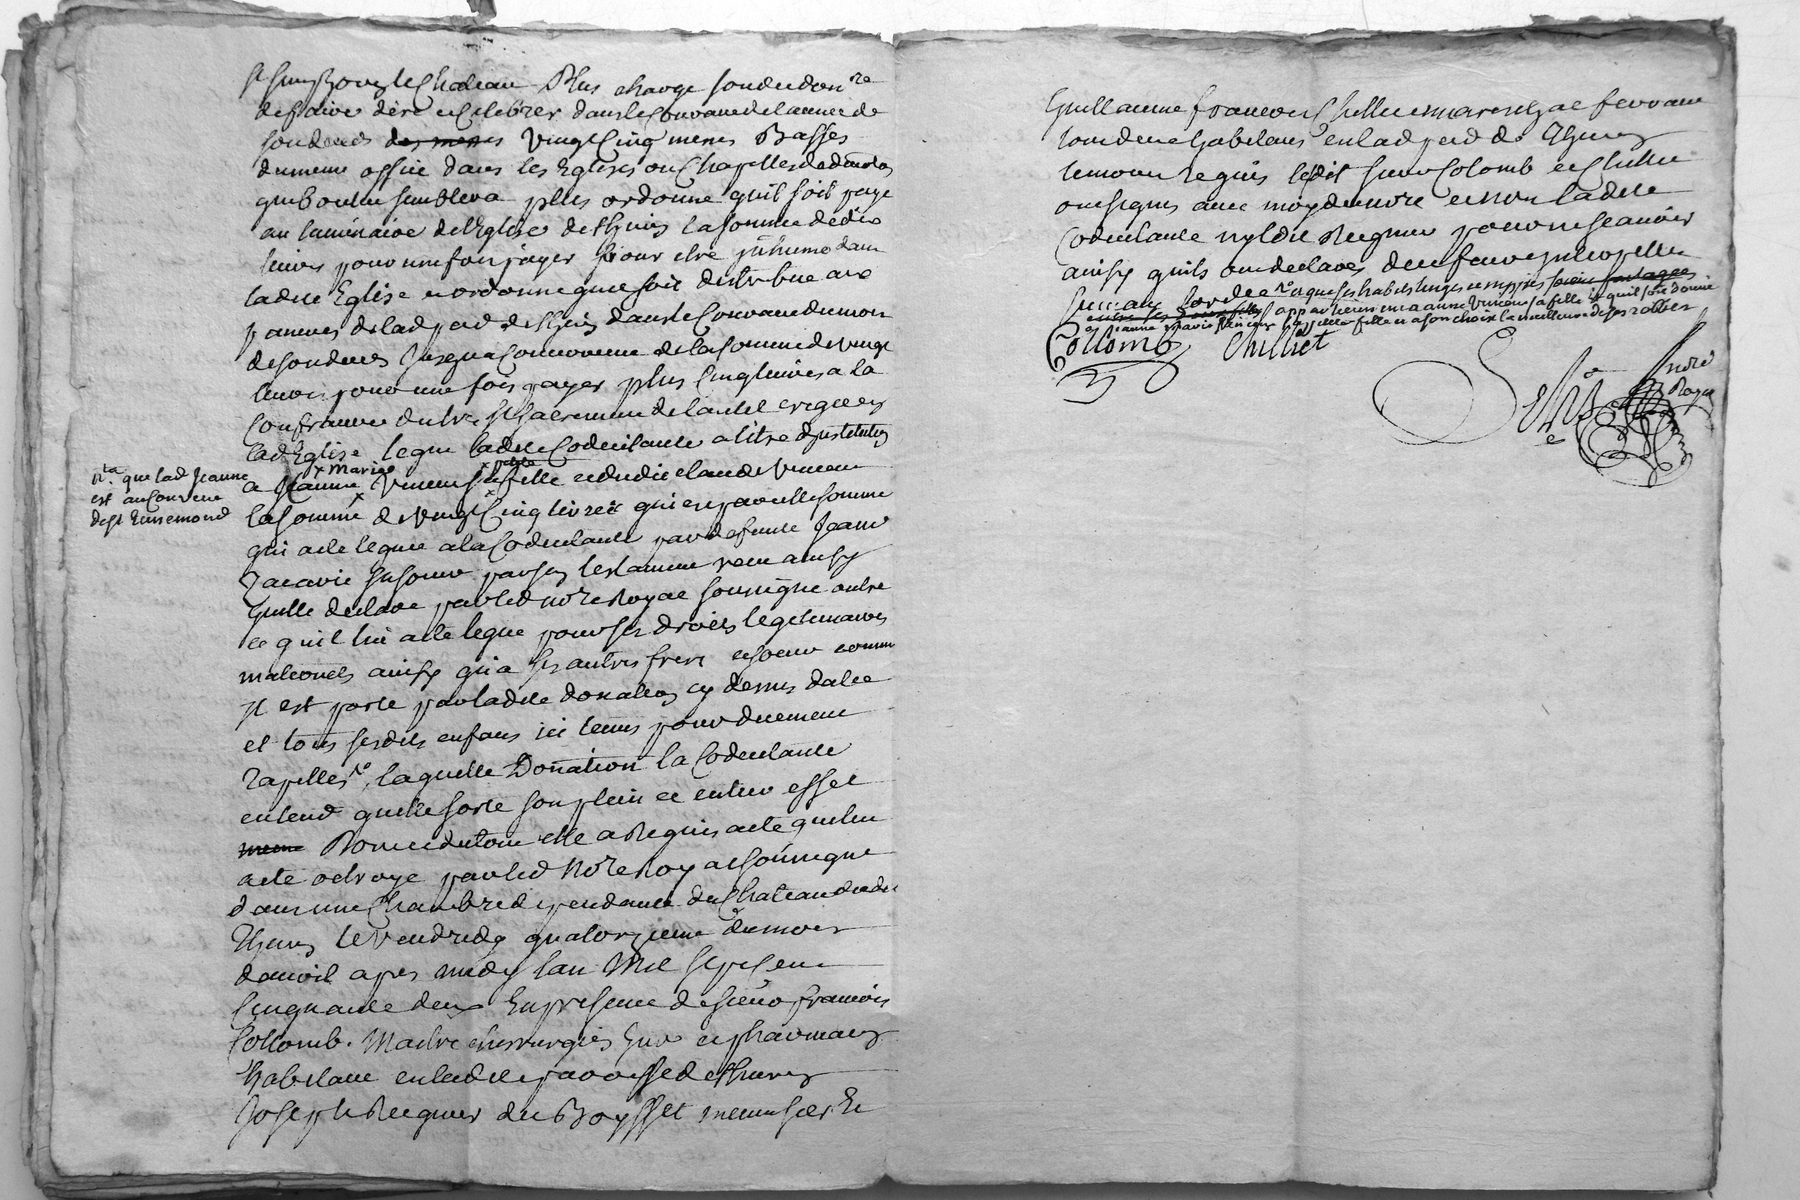 St Simphorien le Chateau Plus charge sondit don.re
de faire dire et Celebrer dans le Courant de lannee de
son deces des messes vingt Cinq messes Basses
du meme office dans les Eglises ou Chapelles
que bon luy semblera plus ordonne quil soit paye
au luminaire de lEglise de Thurins la somme de dix
livres pour une fois payer pour etre inhumé dans
ladite Eglise et ordonne que soit distribue aux
pauvres de lad parr de Thurins dans le Courant du mois
de son deces jusqua Concurrence de la somme de vingt
livres pour une fois payer plus Cinq livres a la
Confrairie du tres St Sacrement de lautel erigée en
lad Eglise legue ladite Codicillante a titre dinstitution
a Jeanne Marie Vincent sa petite fille
n.ta que lad Jeanne
est au Couvent
de St Ennemond
la somme de vingt Cinq livres qui est pareille somme
qui a ete leguée a la Codicillante par defunte Jeanne
Zacarie sa soeur par son testament receu ainsy
quelle declare par led no.re Royal soussigné outre
ce quil lui a ete legué pour ses droits legitimaires
maternels ainsy qua ses autres frere et soeur comme
il est porté par ladite donation cy dessus datée
et tous sesdits enfans ici tenus pour duement
rapellés, laquelle Donation la Codicillante
entend quelle sorte son plein et entier effet
Dont et du tout elle a Requis acte quelui
a ete octroyé par led No.re Royal soussigné
dans une Chambre dependante du Chateau dud
Thurins le Vendredy quatorzieme du mois
davril apres midy lan Mil sept Cent
Cinquante deux En presence de sieur francois
Collomb. Maitre chirurgien Juré et pharmacien
habitant en ladite paroisse de Thurins
Joseph Requier du Boysset menusier Et
Guillaume francois Chillet marechal ferrant
tous deux habitans en lad par de Thurins
temoins Requis ledit sieur Colomb et Chillet
ont signés avec moydit no.re et non ladite
Codicillante ny ledit Requier pour ne scavoir
ainsy quils ont declarés de ce faire interpellés
et que ses habits linges et nippes soient partagés
entre ses deux filles appartiennent a anne Vincent sa fille et quil soit donné
a Jeanne Marie Vincent sa petite fille a son choix la meilleure de ses robbes
Collomb Chilliet